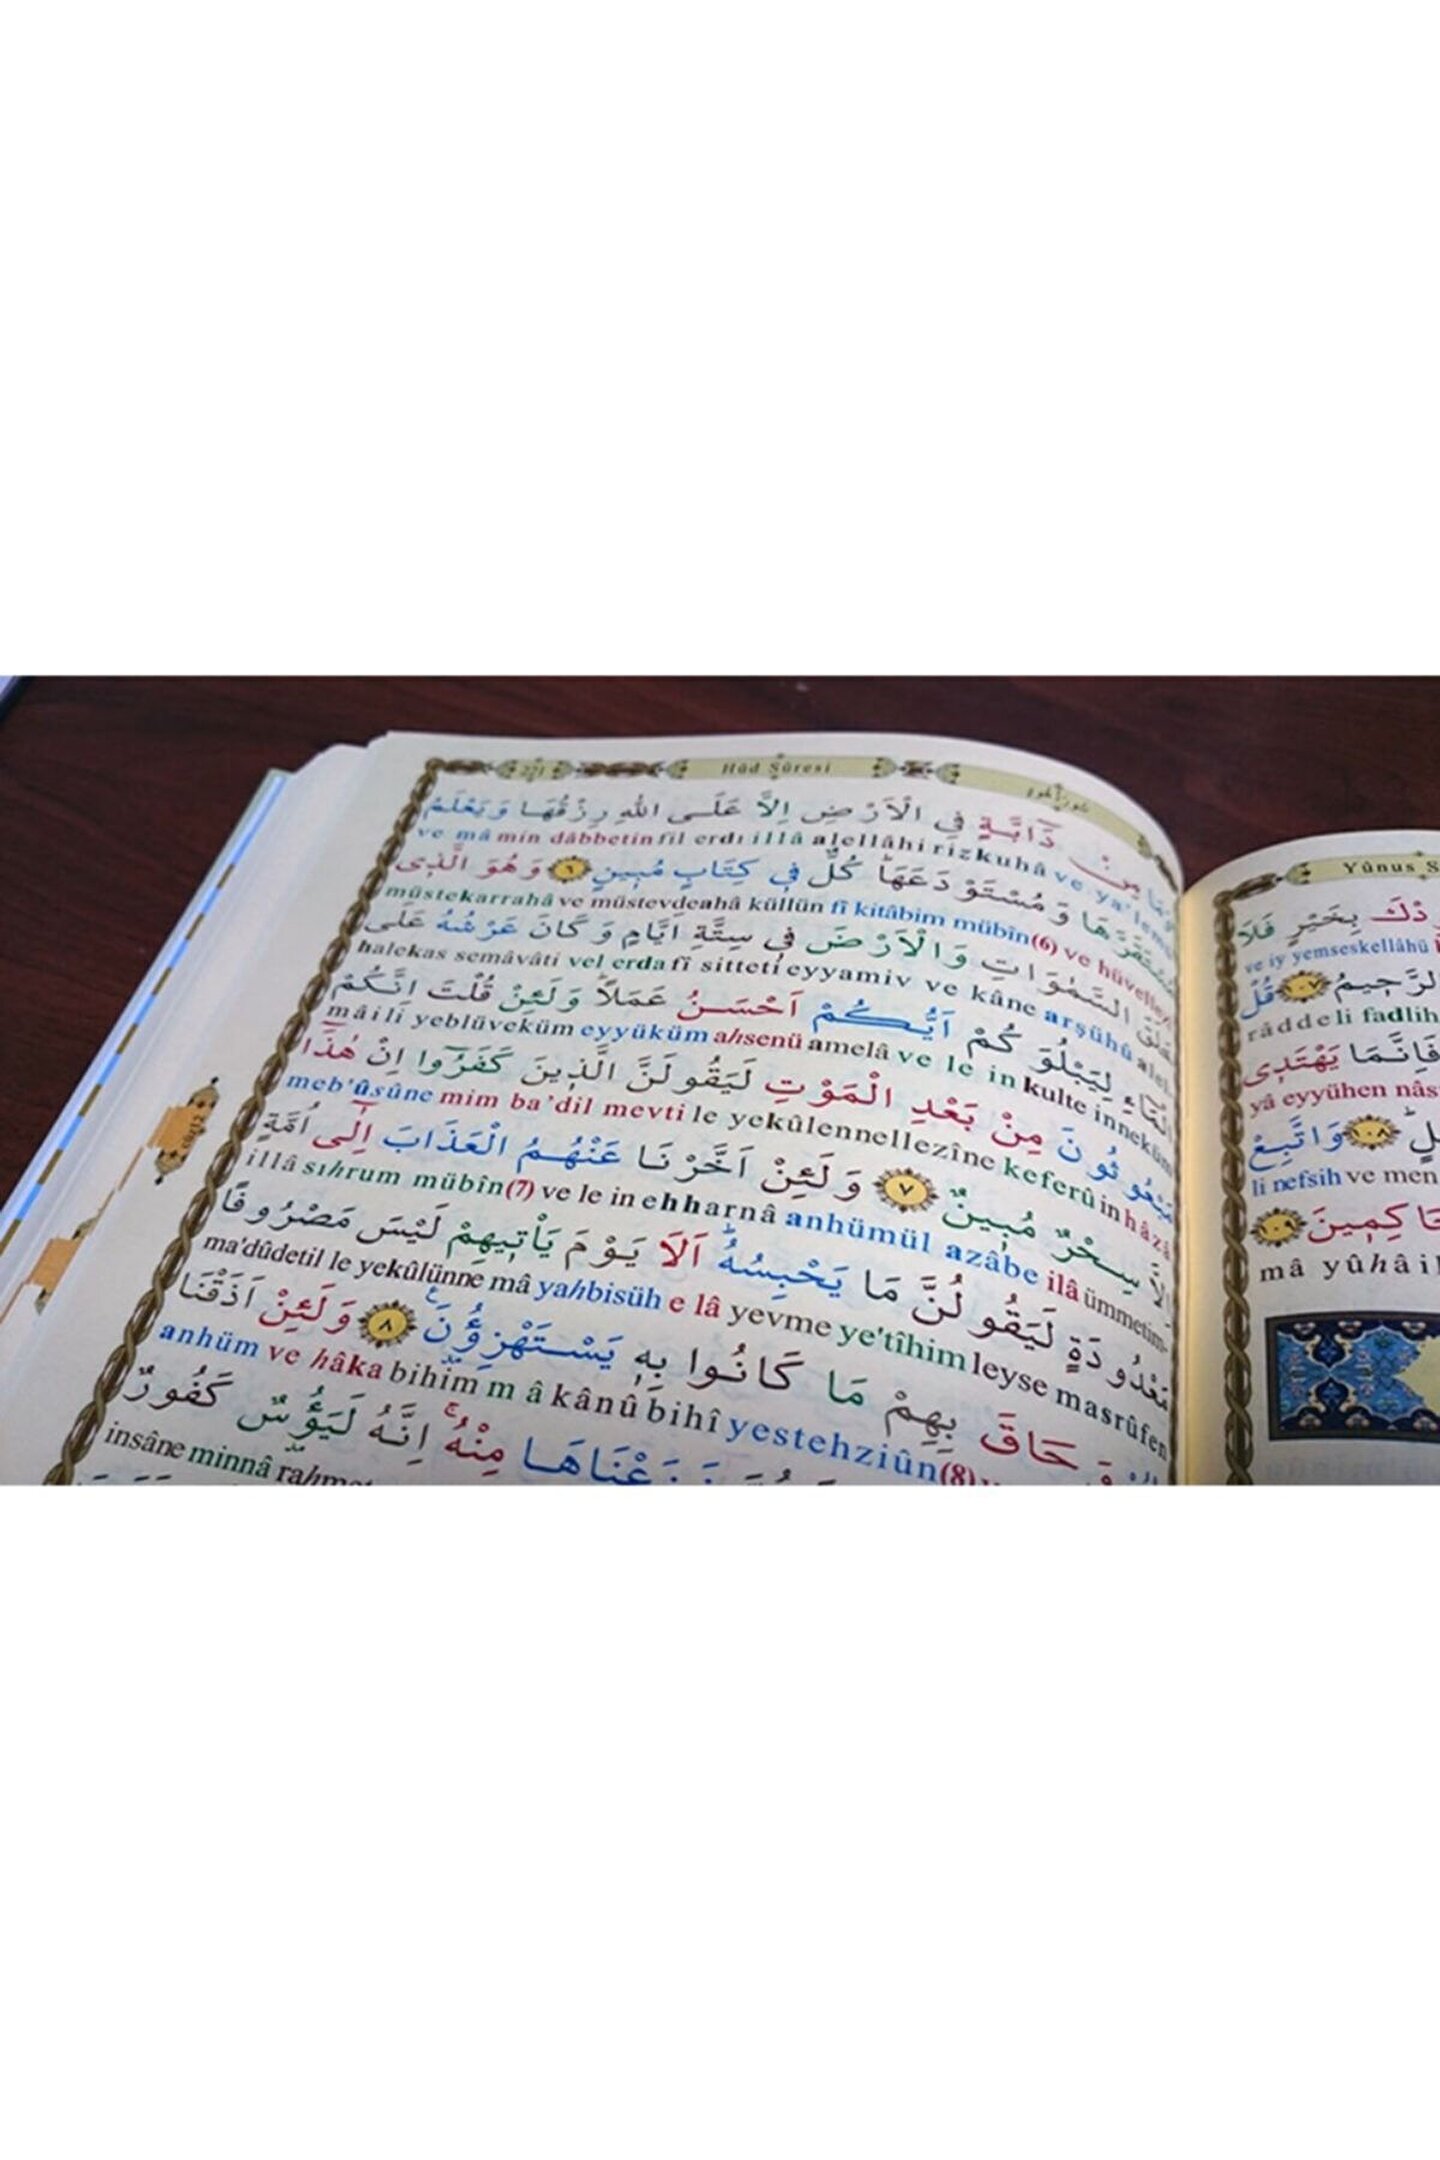 Hûd Sûresi
وَمَا مِنْ دَٓابَّةٍ فِي الْاَرْضِ اِلَّا عَلَى اللّٰهِ رِزْقُهَا وَيَعْلَمُ
ve mâ min dâbbetin fil erdı illâ alellâhi rizkuhâ ve ya'lemü
مُسْتَقَرَّهَا وَمُسْتَوْدَعَهَاۜ كُلٌّ فِي كِتَابٍ مُبِينٍ ٦ وَهُوَ الَّذِي
müstekarrahâ ve müstevdeahâ küllün fî kitâbim mübîn(6) ve hüvellezî
خَلَقَ السَّمٰوَاتِ وَالْاَرْضَ فِي سِتَّةِ اَيَّامٍ وَكَانَ عَرْشُهُ عَلَى
halekas semâvâti vel erda fî sitteti eyyamiv ve kâne arşühû alel
الْمَٓاءِ لِيَبْلُوَكُمْ اَيُّكُمْ اَحْسَنُ عَمَلًاۜ وَلَئِنْ قُلْتَ اِنَّكُمْ
mâi li yeblüveküm eyyüküm ahsenü amelâ ve le in kulte inneküm
مَبْعُوثُونَ مِنْ بَعْدِ الْمَوْتِ لَيَقُولَنَّ الَّذِينَ كَفَرُٓوا اِنْ هٰذَٓا
meb'ûsûne mim ba'dil mevti le yekûlennellezîne keferû in hâzâ
اِلَّا سِحْرٌ مُبِينٌ ٧ وَلَئِنْ اَخَّرْنَا عَنْهُمُ الْعَذَابَ اِلٰٓى اُمَّةٍ
illâ sıhrum mübîn(7) ve le in ehharnâ anhümül azâbe ilâ ümmetim-
مَعْدُودَةٍ لَيَقُولُنَّ مَا يَحْبِسُهُۜ اَلَا يَوْمَ يَأْتِيهِمْ لَيْسَ مَصْرُوفًا
ma'dûdetil le yekûlünne mâ yahbisüh e lâ yevme ye'tîhim leyse masrûfen
وَحَاقَ بِهِمْ مَا كَانُوا بِهِ يَسْتَهْزِؤُنَ ٨ وَلَئِنْ اَذَقْنَا
anhüm ve hâka bihim mâ kânû bihî yestehziûn(8)
نَزَعْنَاهَا مِنْهُ اِنَّهُ لَيَؤُسٌ كَفُورٌ
insâne minnâ rahmet
Yûnus S
بِخَيْرٍ فَلَا
ve iy yemseskellâhü
الرَّحِيمُ ١٠٧ قُلْ
râdde li fadlih
فَاِنَّمَا يَهْتَدِي
yâ eyyühen nâs
١٠٨ وَاتَّبِعْ
li nefsih ve men
١٠٩
mâ yûhâ il